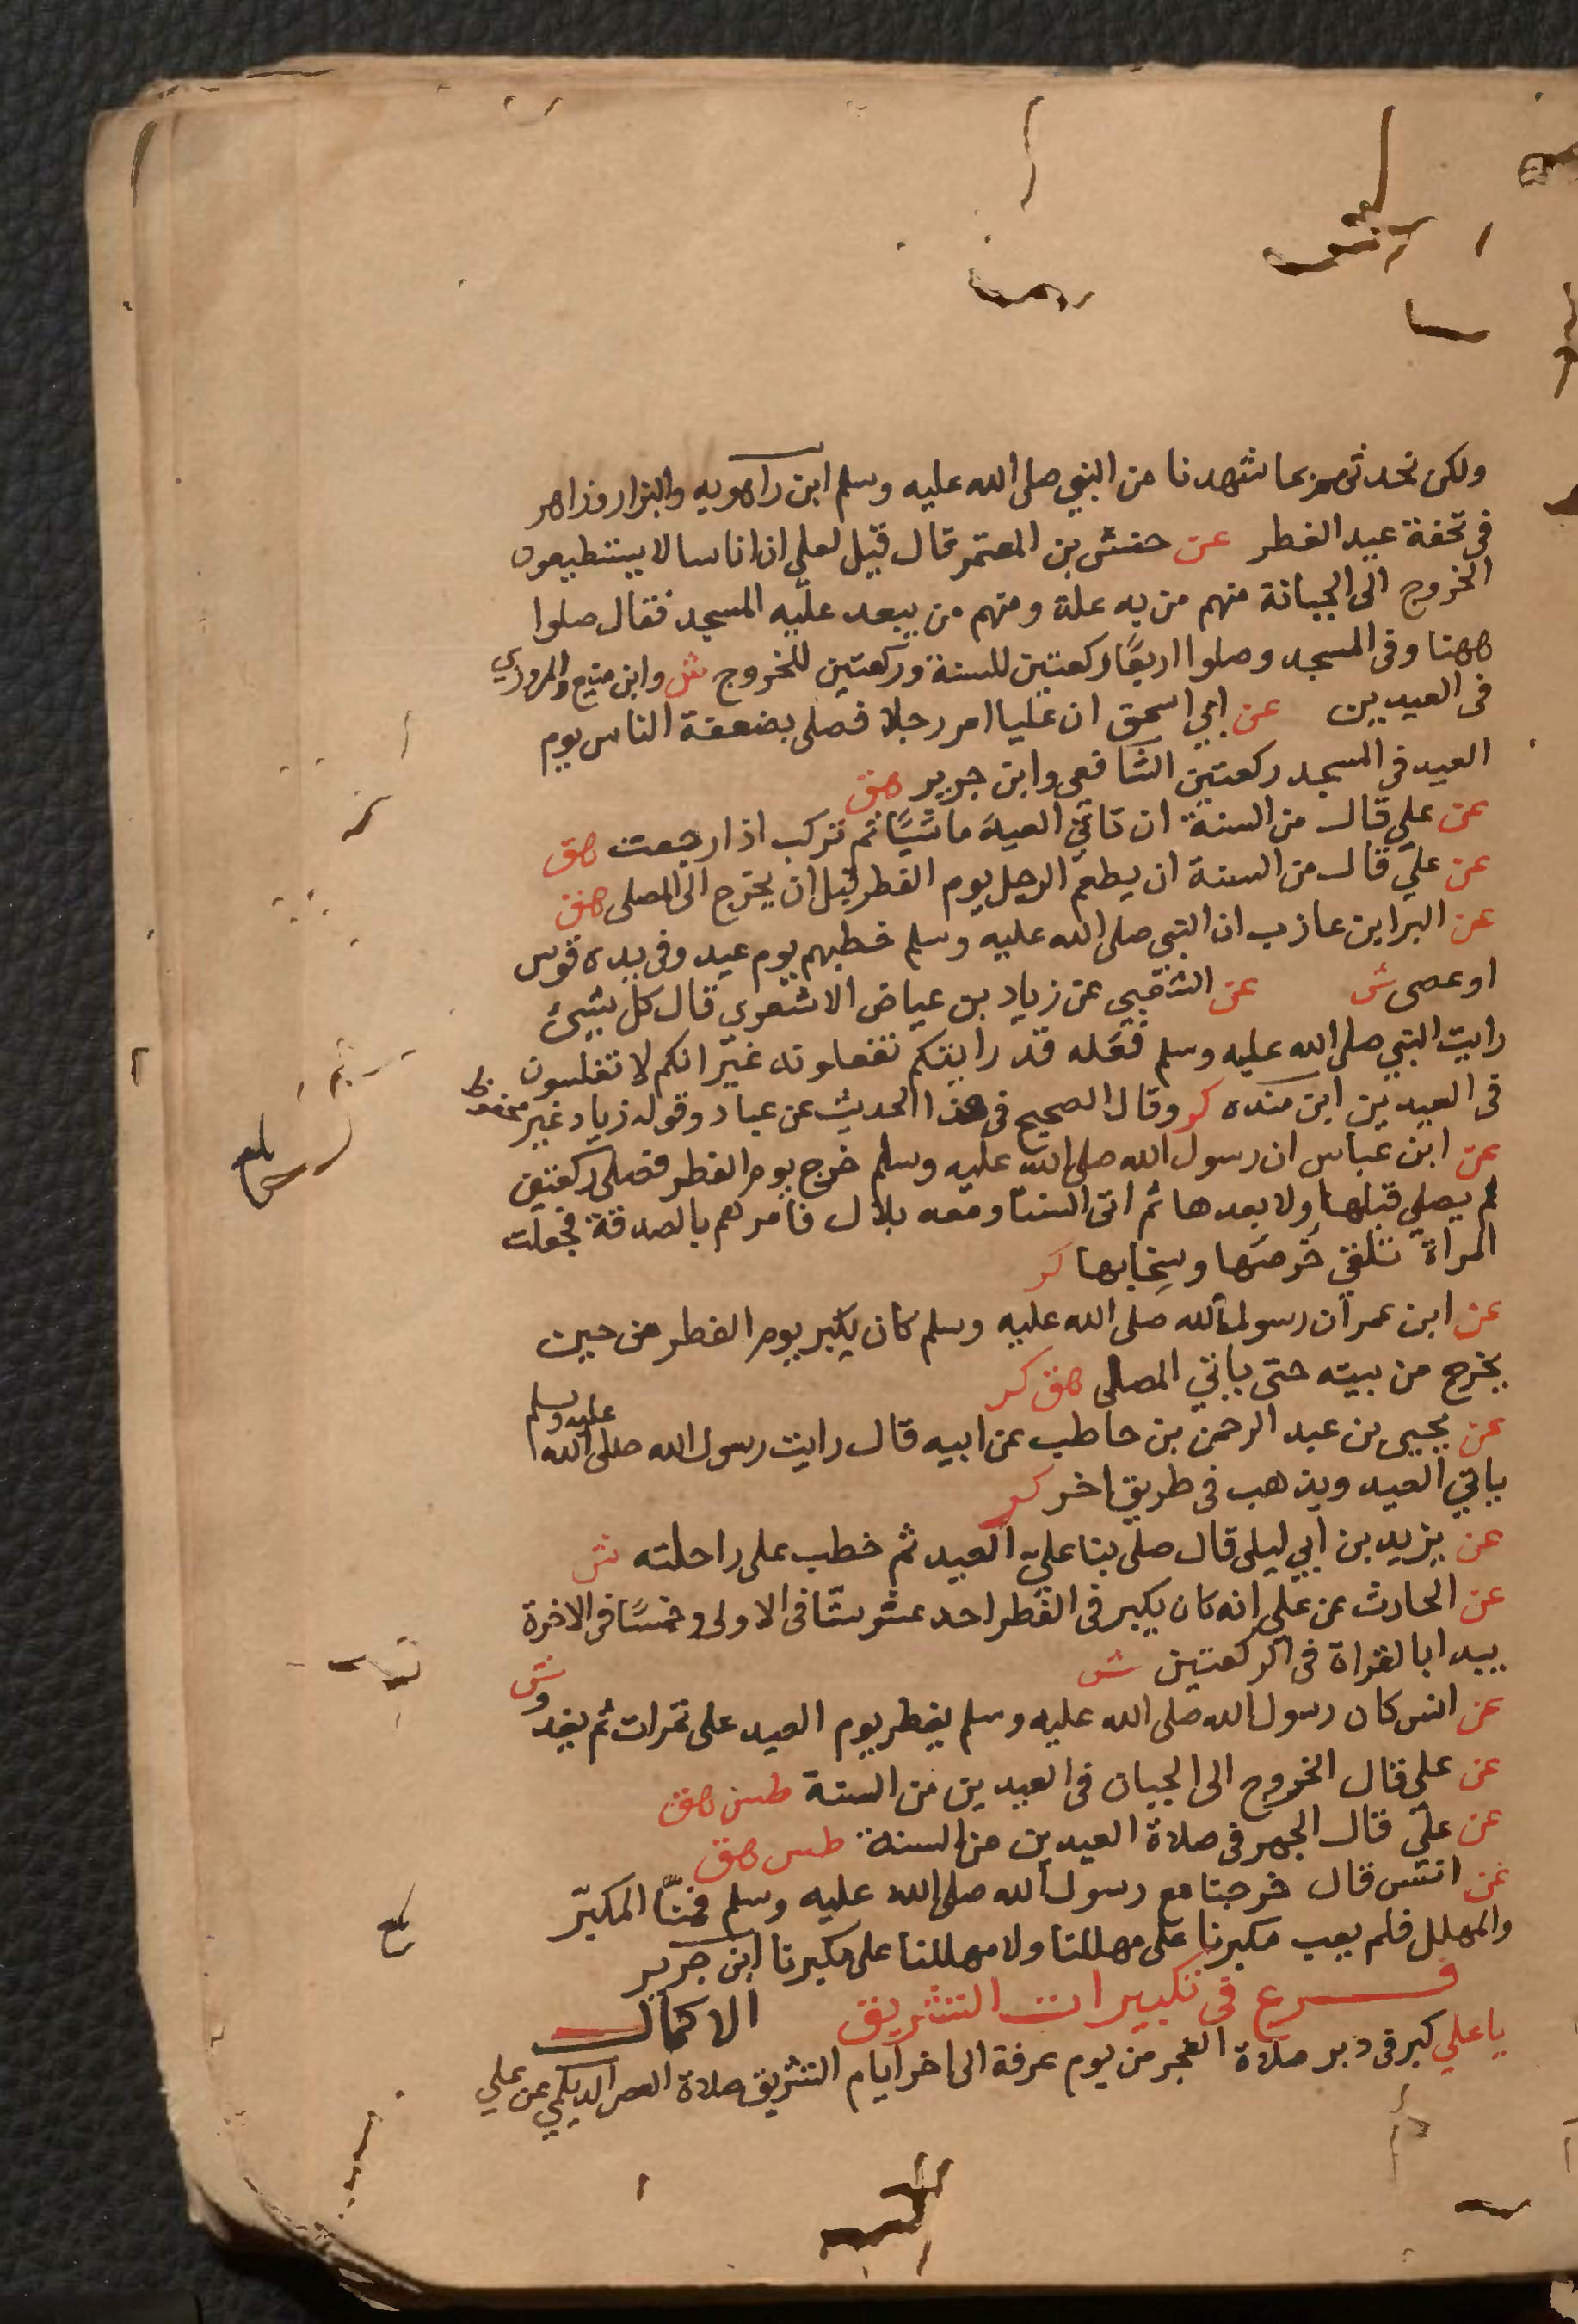 ولكن نحدثهم بما شهدنا من النبي صلى الله عليه وسلم ابن راهويه والبزار وزاهر
فى تحفة عيد الفطر عن حنش بن المعتمر قال قيل لعلي ان اناسا لا يستطيعون
الخروج الى الجبانة منهم من به علة ومنهم من يبعد عليه المسجد فقال صلوا
ههنا وفى المسجد وصلوا اربعًا ركعتين للسنة وركعتين للخروج ش وابن منيع والمروزي
فى العيدين عن ابي اسحق ان عليا امر رجلا فصلى بضعفة الناس يوم
العيد فى المسجد ركعتين الشافعى وابن جرير هق
عن علي قال من السنة ان تاتي العيد ماشيًا ثم تركب اذا رجعت هق
عن علي قال من السنة ان يطعم الرجل يوم الفطر قبل ان يخرج الى المصلى هق
عن البرا بن عازب ان النبي صلى الله عليه وسلم خطبهم يوم عيد وفى يده قوس
او عصى ش عن الشعبي عن زياد بن عياض الاشعري قال كل شيئ
رايت النبي صلى الله عليه وسلم فعله قد رايتكم تفعلونه غير انكم لا تغلسون
فى العيدين ابن منده كر وقال الصحيح فى هذا الحديث عن عياد وقوله زياد غير محفوظ
عن ابن عباس ان رسول الله صلى الله عليه وسلم خرج يوم الفطر فصلى ركعتين
لم يصلي قبلها ولا بعدها ثم اتى النسآ ومعه بلال فامرهم بالصدقة فجعلت
المراة تلقي خرصها وسخابها كر
عن ابن عمر ان رسول الله صلى الله عليه وسلم كان يكبر يوم الفطر من حين
يخرج من بيته حتى ياتي المصلى هق كر
عن يحيى بن عبد الرحمن بن حاطب عن ابيه قال رايت رسول الله صلى الله عليه وسلم
ياتي العيد ويذهب فى طريق اخر كر
عن يزيد بن ابي ليلى قال صلى بنا علي العيد ثم خطب على راحلته ش
عن الحارث عن علي انه كان يكبر فى الفطر احد عشر ستا فى الاولى وخمسًا فى الاخرة
يبدا بالقراة فى الركعتين ش
عن انس كان رسول الله صلى الله عليه وسلم يفطر يوم العيد على تمرات ثم يغدو ش
عن علي قال الخروج الى الجبان فى العيدين من السنة طس هق
عن علي قال الجهر فى صلاة العيدين من السنة طس هق
عن انس قال خرجنا مع رسول الله صلى الله عليه وسلم فمنّا المكبّر
والمهلل فلم يعب مكبرنا على مهللنا ولا مهللنا على مكبرنا ابن جرير
فرع فى تكبيرات التشريق الاكمال
يا علي كبر فى دبر صلاة الفجر من يوم عرفة الى اخر ايام التشريق صلاة العصر الديلمي عن علي